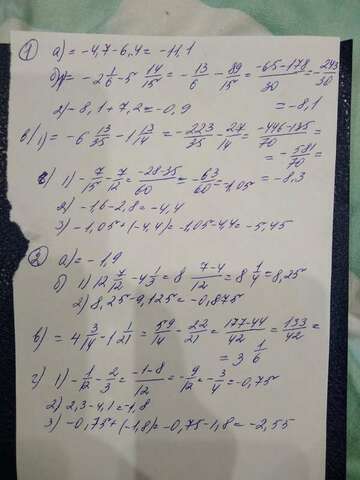 ① а) = -4,7-6,4 = -11,1
б) 1) = -2 1/6 - 5 14/15 = -13/6 - 89/15 = (-65-178)/30 = -243/30
= -8,1
2) -8,1+7,2 = -0,9
в) 1) = -6 13/35 - 1 13/14 = -223/35 - 27/14 = (-446-135)/70 =
= -581/70 =
= -8,3
г) 1) -7/15 - 7/12 = (-28-35)/60 = -63/60 = -1,05
2) -1,6-2,8 = -4,4
3) -1,05+(-4,4) = -1,05-4,4 = -5,45
② а) = -1,9
б) 1) 12 7/12 - 4 1/3 = 8 (7-4)/12 = 8 1/4 = 8,25
2) 8,25-9,125 = -0,875
в) = 4 3/14 - 1 1/21 = 59/14 - 22/21 = (177-44)/42 = 133/42 =
= 3 1/6
г) 1) -1/12 - 2/3 = (-1-8)/12 = -9/12 = -3/4 = -0,75
2) 2,3-4,1 = -1,8
3) -0,75+(-1,8) = -0,75-1,8 = -2,55